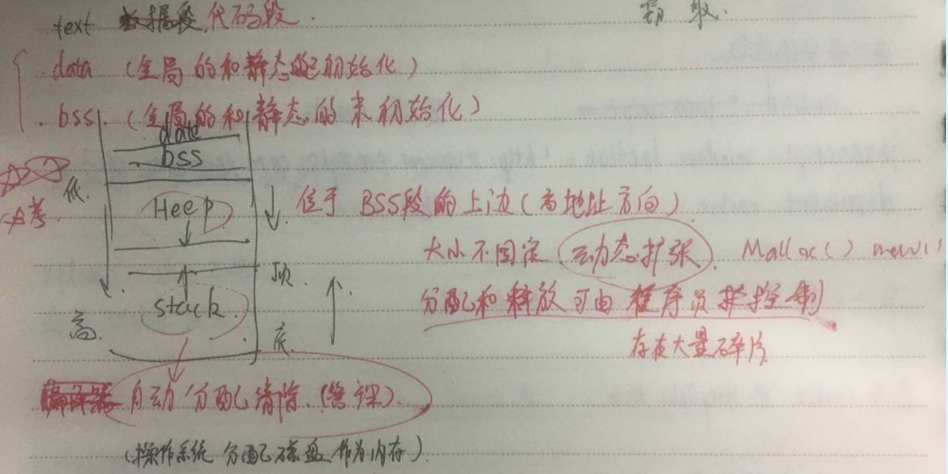 text 数据段,代码段.
data (全局的和静态的已初始化)
bss. (全局的和静态的未初始化)
date
bss
低.
必考.
Heep
位于 BSS段的上边(高地址方向)
大小不固定(动态扩张). Malloc() new()
顶.
stack.
分配和释放可由程序员控制
高.
底.
存在大量碎片
自动分配清除.
(操作系统 分配磁盘 作为内存).